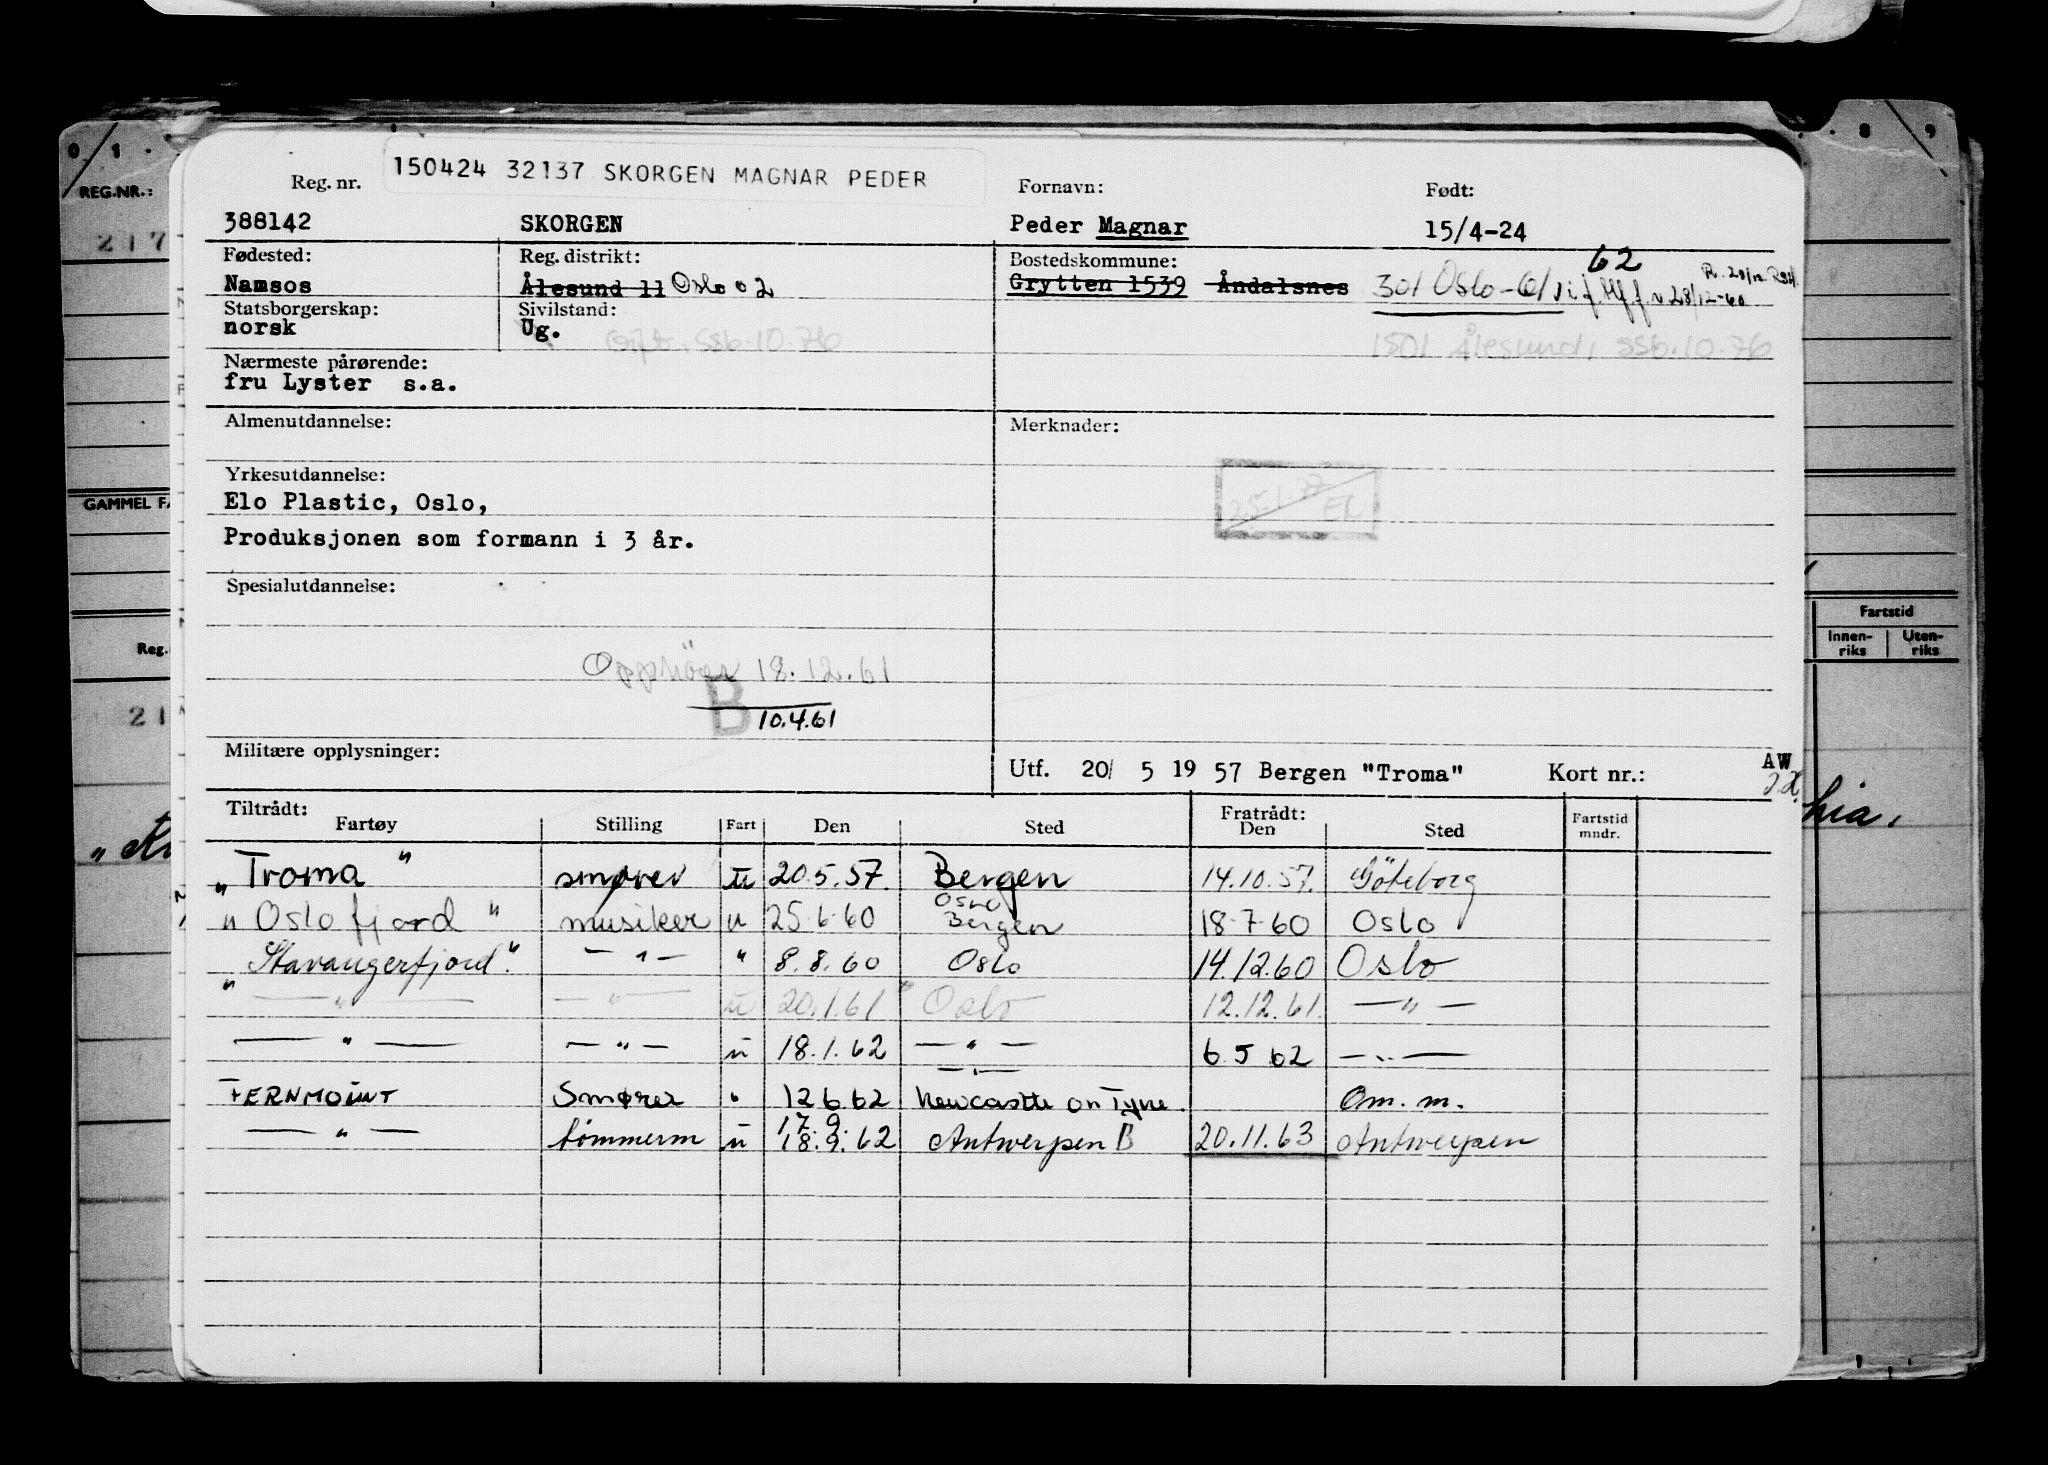 0 1 . 8 9
REG.NR.:
217
GAMMEL
Reg.
21
Fartstid
Innen-riks Uten-riks
hia.
150424 32137 SKORGEN MAGNAR PEDER
Reg. nr. Fornavn: Født:
388142 SKORGEN Peder Magnar 15/4-24
Fødested: Reg. distrikt: Bostedskommune: 62
Namsos Ålesund 11 Oslo 02 Grytten 1539 Åndalsnes 301 Oslo-61
Statsborgerskap: Sivilstand:
norsk Ug. Gift. ssb.10.76 1501 Ålesund, ssb.10.76
Nærmeste pårørende:
fru Lyster s.a.
Almenutdannelse: Merknader:
Yrkesutdannelse:
Elo Plastic, Oslo, 25-1-77 EK
Produksjonen som formann i 3 år.
Spesialutdannelse:
Opphöer 18.12.61
B
10.4.61
Militære opplysninger: Utf. 20/ 5 19 57 Bergen "Troma" Kort nr.: AW
Tiltrådt: Fratrådt:
Fartøy Stilling Fart Den Sted Den Sted Fartstid mndr.
"Troma" smører u 20.5.57. Bergen 14.10.57. Göteborg
"Oslofjord" musiker u 25.6.60 Oslo Bergen 18-7-60 Oslo
"Stavangerfjord". — " — " 8.8.60 Oslo 14.12.60 Oslo
— " — — " — u 20.1.61 Oslo 12.12.61. — " —
— " — — " — u 18.1.62 — " — 6.5 62 — " —
— " —
FERNMOUNT Smører " 12 6.62 Newcastle on Tyne. Om. m.
— " — tömmerm u 17.9. 18.9.62 Antwerpen B 20.11.63 Antwerpen